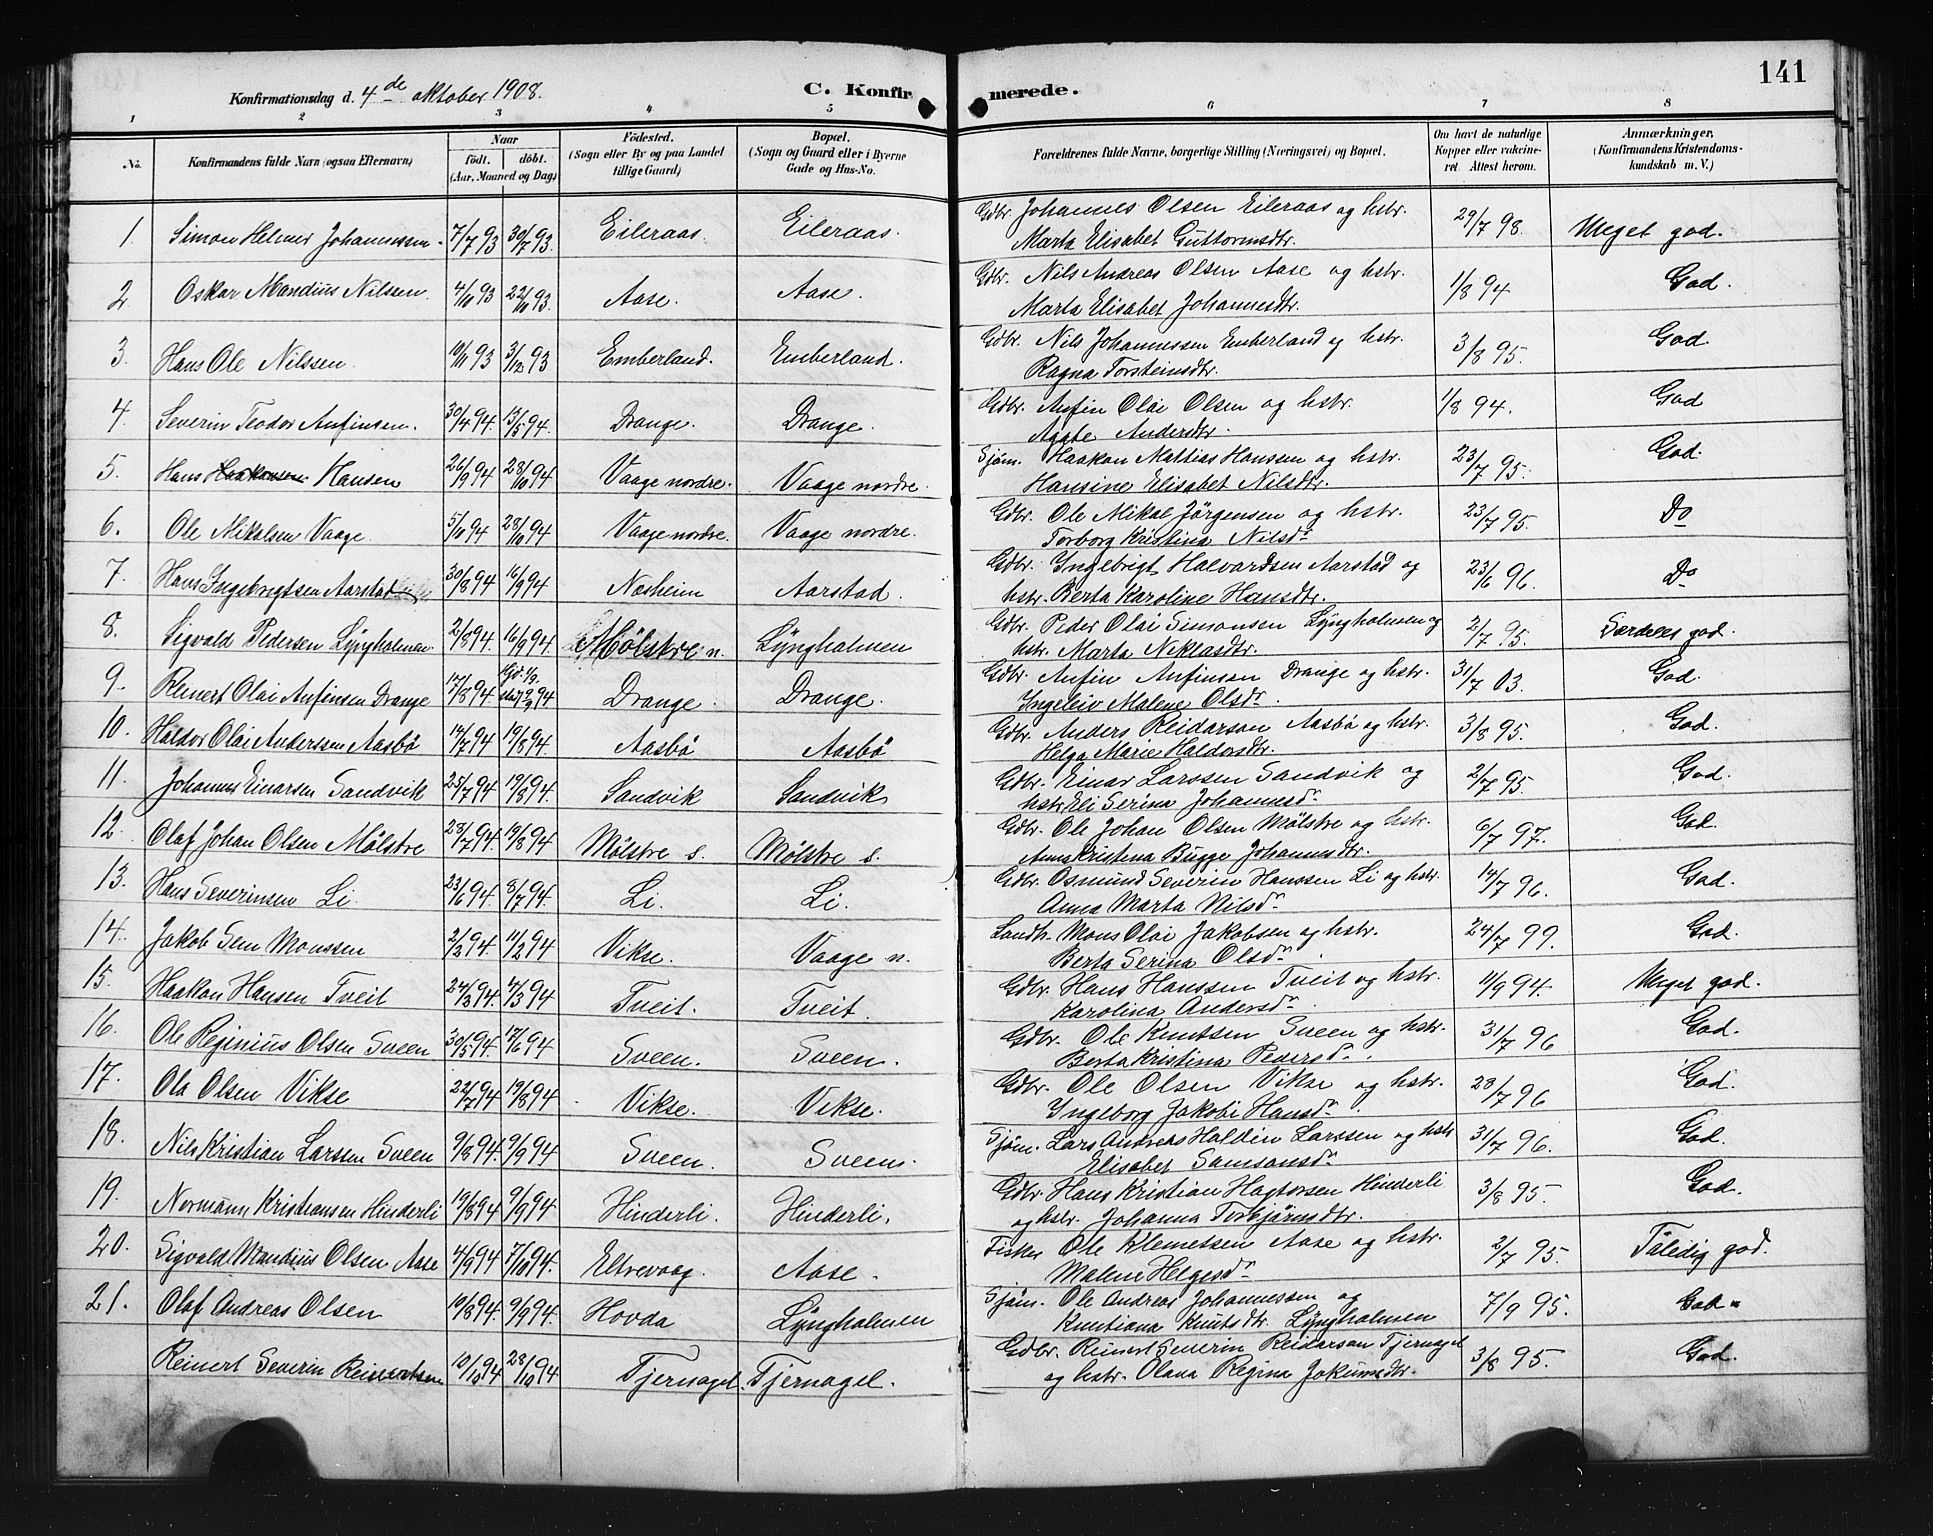 141
Konfirmationsdag d. 4de oktober 1908. C. Konfirmerede.
1 2 3 4 5 6 7 8
No. Konfirmandens fulde Navn (ogsaa Efternavn) Naar Födested. Bopæl. Forældrenes fulde Navne, borgerlige Stilling (Næringsvei) og Bopæl. Om havt de naturlige Anmærkninger,
födt. döbt. (Sogn eller By og paa Landet (Sogn og Gaard eller i Byerne Kopper eller vakcine- (Konfirmandens Kristendoms-
(Aar, Maaned og Dag) tillige Gaard) Gade og Hus-No. ret Attest herom. kundskab m. V.)
1. Simon Helmer Johannessen. 7/7 93 30/7 93. Eileraas. Eileraas. Gdbr. Johannes Olsen Eileraas og hstr. 29/7 98. Meget god.
Marta Elisabet Guttormsdtr.
2 Oskar Mandius Nilsen. 4/10 93 22/10 93. Aase. Aase. Gdbr. Nils Andreas Olsen Aase og hstr. 1/8 94 God.
Marta Elisabet Johannesdtr.
3. Hans Ole Nilssen. 10/11 93 3/12 93 Emberland. Emberland. Gdbr. Nils Johannessen Emberland og hstr. 3/8 95. God.
Ragna Torsteinsdtr.
4. Severin Teodor Anfinsen. 30/4 94. 13/5 94. Drange. Drange. Gdbr. Anfin Olai Olsen og hstr. 1/8 94. God
Agate Andersdtr.
5. Hans Haakonsen Hansen 26/9 94 28/10 94 Vaage nordre. Vaage nordre. Sjöm. Haakon Mattias Hanssen og hstr. 23/7 95. God.
Hansine Elisabet Nilsdtr.
6. Ole Mikalsen Vaage. 5/10 94 28/10 94 Vaage nordre. Vaage nordre. Gdbr. Ole Mikal Jörgensen og hstr. 23/7 95. Do
Torborg Kristina Nilsdr
7. Hans Ingebrigtsen Aarstad 30/8 94 16/9 94 Nesheim Aarstad. Gdbr. Ingebrigt Halvardsen Aarstad og 23/6 96. Do
hstr. Berta Karoline Hansdtr.
8. Sigvald Pedersen Lÿngholmen 2/8 94. 16/9 94. Mölstre n. Lÿngholmen Gdbr. Peder Olai Simonsen Lÿngholmen og 2/7 95. Særdeles god.
hstr. Marta Niklasdtr.
9. Reinert Olai Anfinsen Drange 17/8 94 94 Drange. Drange. Gdbr. Anfin Anfinsen Drange og hstr. 31/7 03. God.
Ingeleiv Malene Olsdr.
10. Haldor Olai Anderssen Aasbö 14/7 94 19/8 94. Aasbö Aasbö Gdbr. Anders Reidarson Aasbö og hstr. 3/8 95. God.
Helga Marie Haldorsdtr.
11. Johannes Einarsen Sandvik 25/7 94 19/8 94. Sandvik Sandvik Gdbr. Einar Larssen Sandvik og 2/7 95. God.
hstr Eli Serina Johannesdr
12. Olaf Johan Olsen Mölstre 28/7 94. 19/8 94 Mölstre s. Mölstre s. Gdbr. Ole Johan Olsen Mölstre og hstr. 6/7 97. God.
Anna Kristena Bugge Johannesdtr.
13. Hans Severinsen Li 23/6 94. 8/7 94. Li. Li. Gdbr. Osmund Severin Hanssen Li og hstr. 14/7 96. God.
Anna Marta Nilsdr
14. Jakob Sem Monssen 2/2 94. 11/2 94 Vikse. Vaage n. Landh. Mons Olai Jakobsen og hstr. 24/7 99. God.
Berta Serina Olsdr
15. Haakon Hansen Tveit 24/2 94. 4/3 94 Tveit. Tveit. Gdbr. Hans Hanssen Tveit og hstr. 11/9 94. Meget god.
Karolina Andersdr
16. Ole Reginius Olsen Sveen 30/5 94. 17/6 94 Sveen. Sveen. Gdbr. Ole Knutsen Sveen og hstr. 31/7 96 God.
Berta Kristina Pedersdr.
17. Ola Olsen Vikse 22/7 94 19/8 94 Vikse. Vikse. Gdbr. Ole Olsen Vikse og hstr. 28/7 96 God.
Ingeborg Jakobi Hansdr.
18. Nils Kristian Larssen Sveen 9/8 94. 9/9 94 Sveen. Sveen. Sjöm. Lars Andreas Haldin Larssen og hstr 31/7 96. God.
Elisabet Samsonsdr
19. Normann Kristiansen Hinderli 19/8 94 9/9 94 Hinderli. Hinderli. Gdbr Hans Kristian Hagtorsen Hinderli 3/8 95. God.
og hstr. Johanna Torbjörnsdtr.
20. Sigvald Mandius Olsen Aase 4/9 94 7/10 94. Eltrevaag. Aase. Fisker Ole Klemetsen Aase og hstr. 2/7 95. Taaledig god.
Malene Helgesdr
21. Olaf Andreas Olsen 19/8 94. 9/9 94 Hovda Lÿngholmen Sjöm. Ole Andreas Johannessen og 7/9 95. God.
Knutsdtr. Lÿngholmen
Reinert Severin Reinertsen 10/10 94 28/10 94 Tjernagel. Tjernagel. Gdbr. Reinert Severin Reidarson Tjernagel 3/8 95. God.
og hstr. Olava Regina Jokumsdtr.